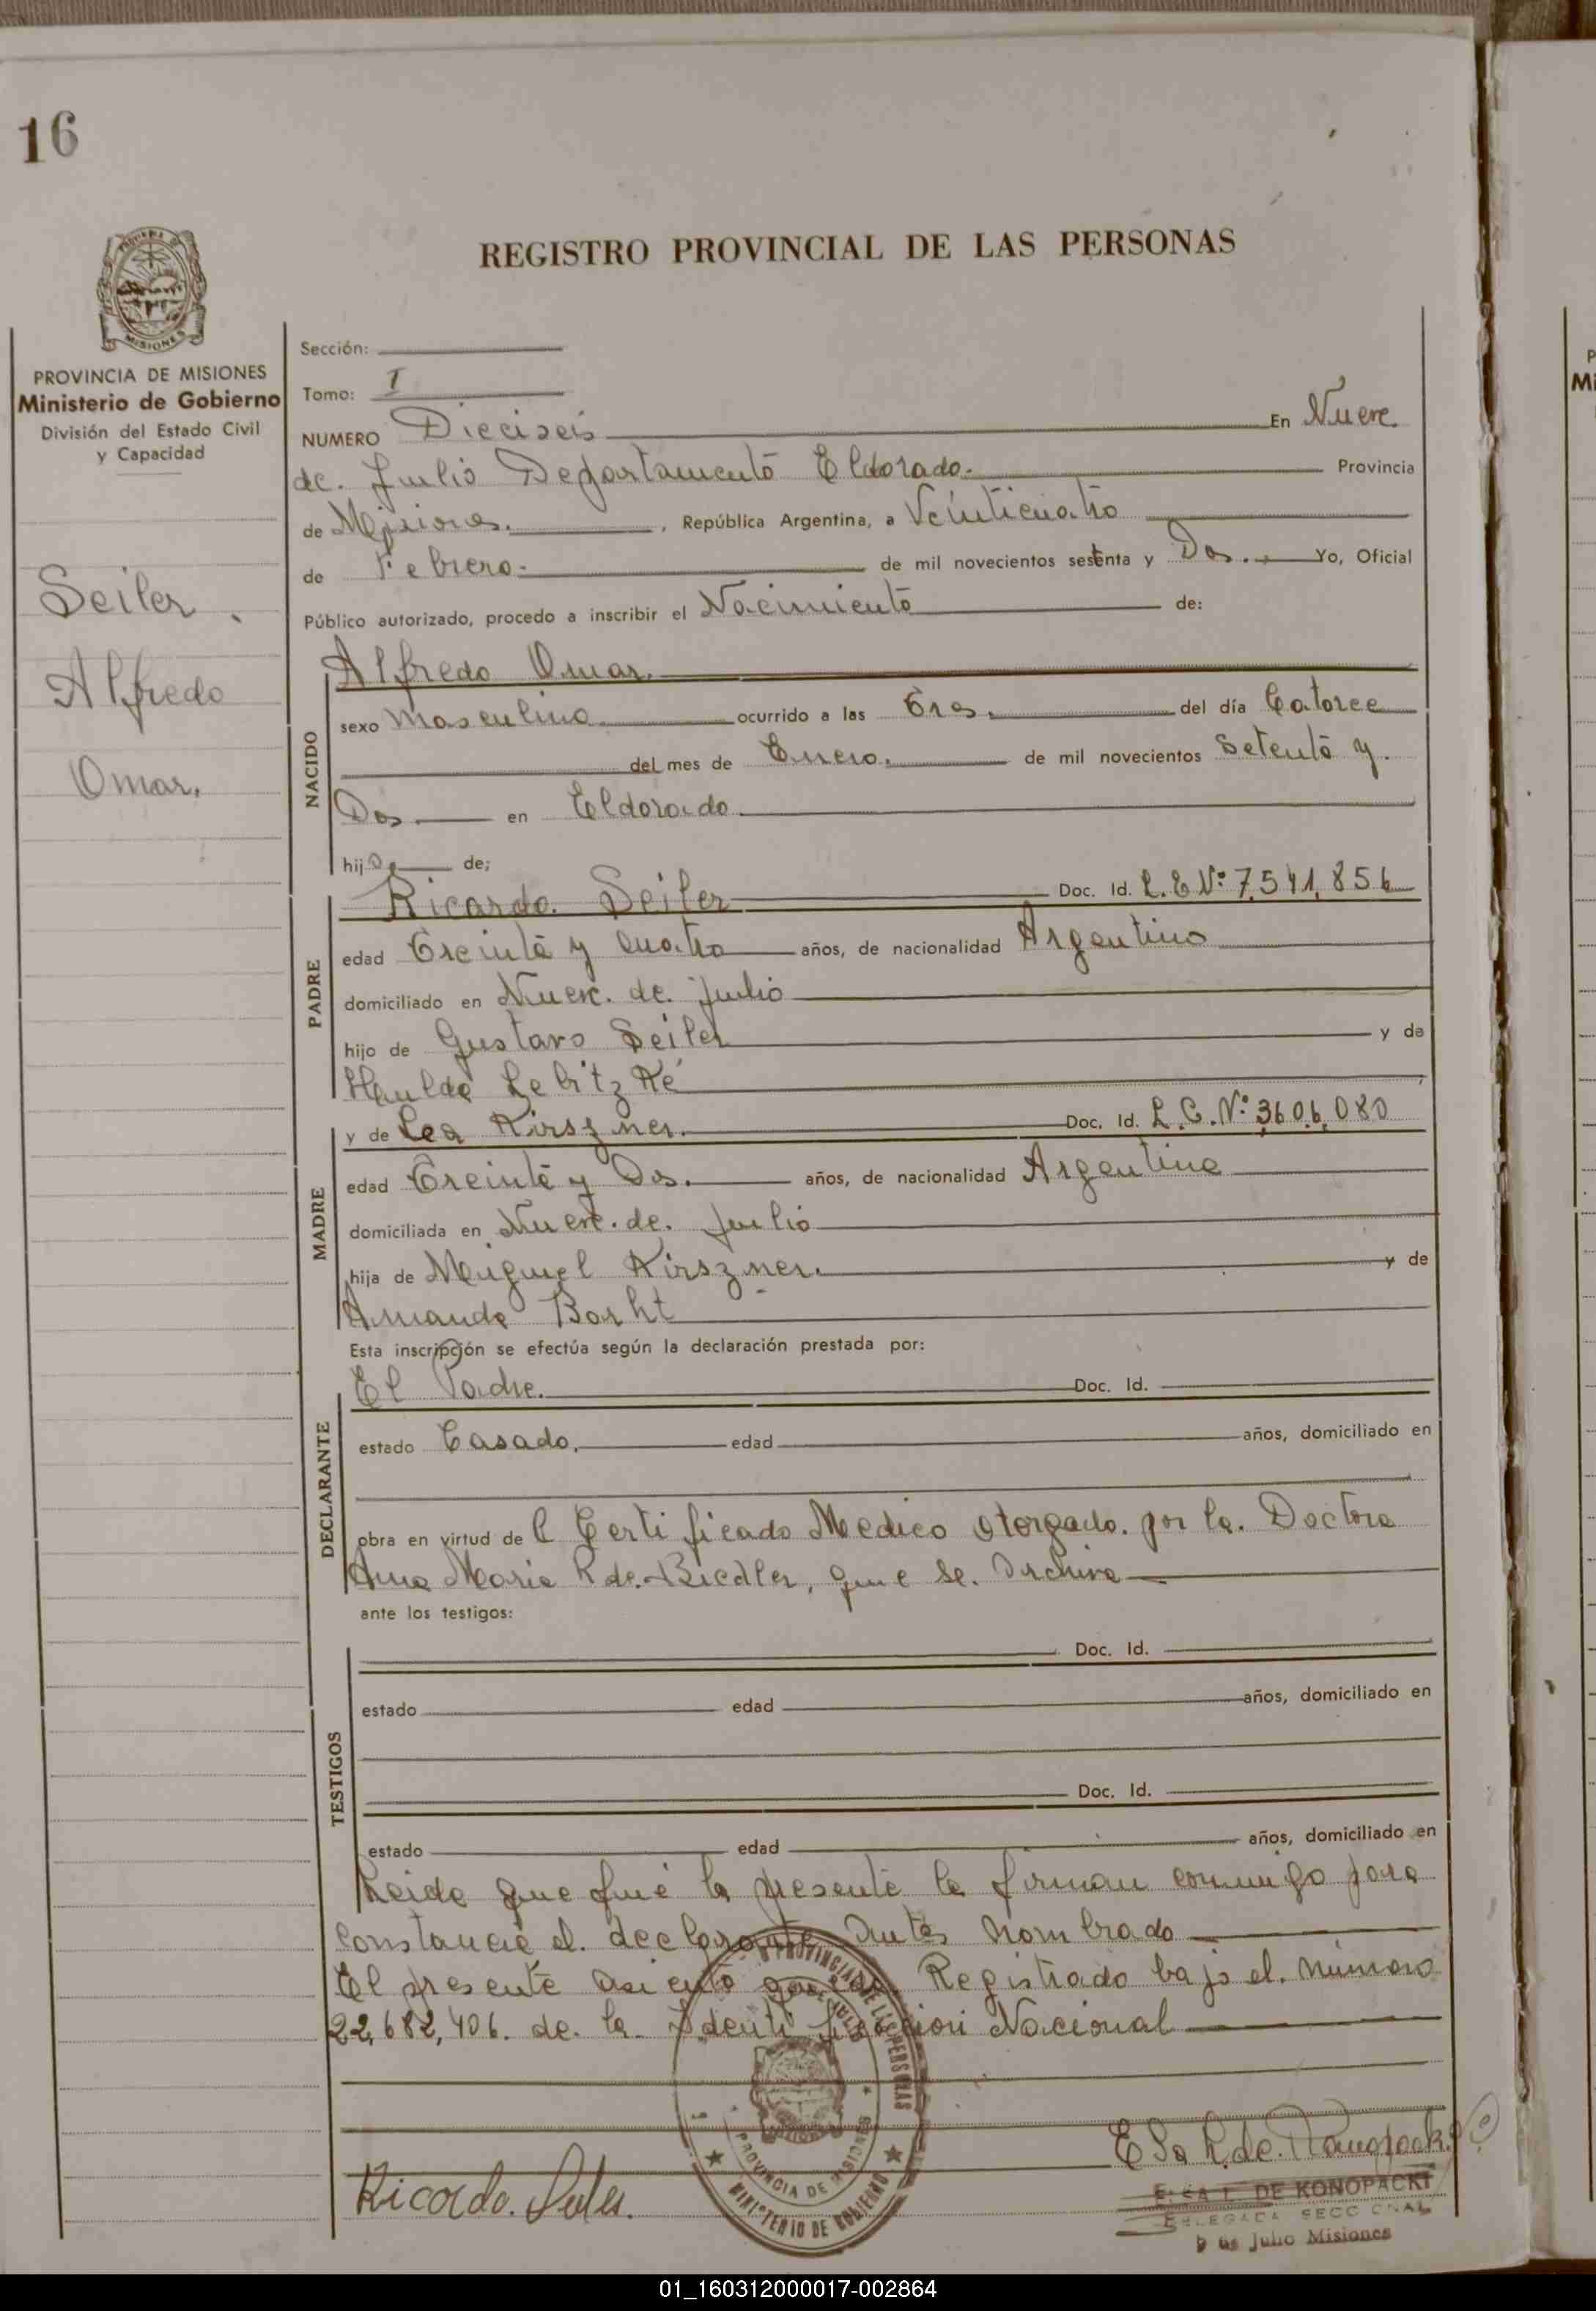 16
REGISTRO PROVINCIAL DE LAS PERSONAS
MISIONES
PROVINCIA DE MISIONES
Ministerio de Gobierno
División del Estado Civil
y Capacidad
Seiler
Alfredo
Omar.
Sección:
Tomo: I
NUMERO Dieciseis En Nueve
de. Julio Departamento Eldorado. Provincia
de Misiones. , República Argentina, a Veinticuatro
de Febrero. de mil novecientos setenta y Dos. Yo, Oficial
Público autorizado, procedo a inscribir el Nacimiento de:
Alfredo Omar.
NACIDO
sexo Masculino. ocurrido a las Tres. del día Catorce
del mes de Enero. de mil novecientos Setenta y.
Dos en Eldorado.
hijo. de;
PADRE
Ricardo. Seiler Doc. Id. L.E Nº 7,541,856
edad Treinta y Cuatro años, de nacionalidad Argentino
domiciliado en Nueve. de. Julio
hijo de Gustavo Seiler y de
Hulda
MADRE
y de Lea Kirszner. Doc. Id. L.C.Nº 3606,080
edad Treinta y Dos. años, de nacionalidad Argentina
domiciliada en Nueve. de. Julio
hija de Miguel Kirszner. y de
Amanda Borht
Esta inscripción se efectúa según la declaración prestada por:
DECLARANTE
El Padre. Doc. Id.
estado Casado. edad años, domiciliado en
obra en virtud de l Certificado Medico Otorgado. por la. Doctora
Ana Maria R de. Biedler, que se. Archiva
ante los testigos:
TESTIGOS
Doc. Id.
estado edad años, domiciliado en
Doc. Id.
estado edad años, domiciliado en
Leida que fué la presente la firman conmigo para
constancia el. declarante Antes Nombrado
El presente asiento queda Registrado bajo el. número
22,682,406. de. la. Identificacion Nacional
PROVINCIA DE MISIONES
MINISTERIO DE GOBIERNO
Ricardo. Seiler.
DE KONOPACKI
DELEGADA SECCIONAL
9 de Julio Misiones
01_160312000017-002864